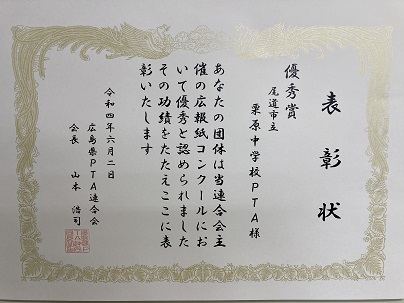 表彰状
優秀賞
尾道市立
栗原中学校PTA様
あなたの団体は当連合会主
催の広報紙コンクールにお
いて優秀と認められました
その功績をたたえここに表
彰いたします
令和四年六月二日
広島県PTA連合会
会長 山本 浩司